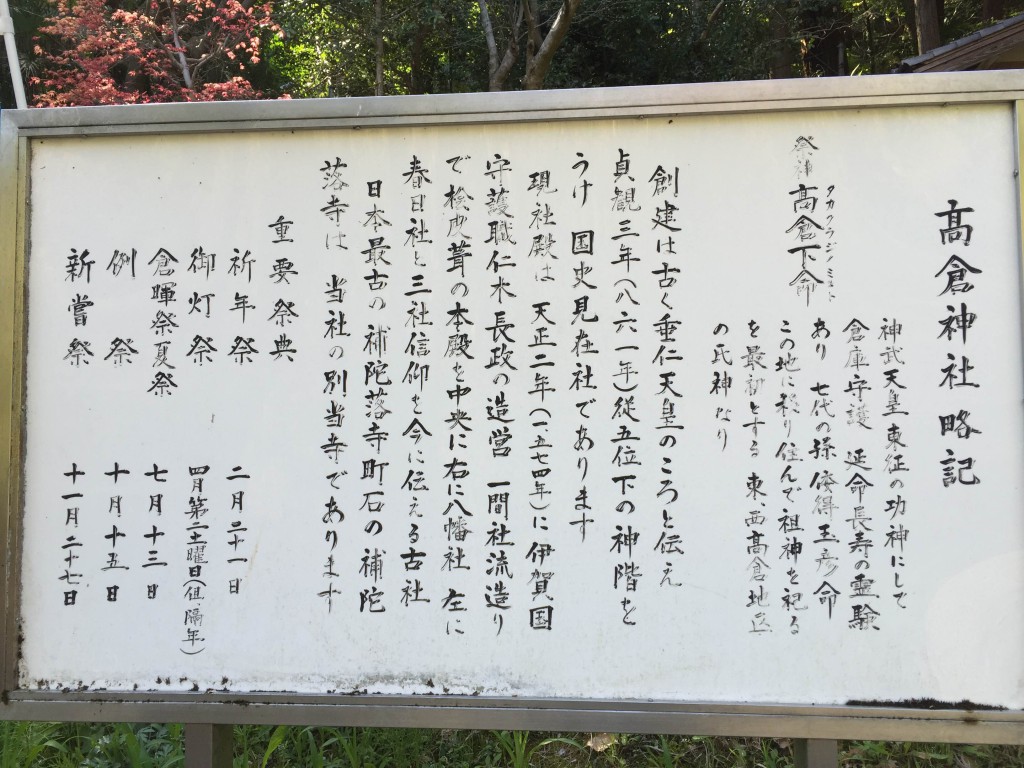 髙倉神社略記
祭神 髙倉下命
タカクラジノミコト
神武天皇東征の功神にして
倉庫守護 延命長寿の霊験
あり 七代の孫 倭得玉彦命
この地に移り住んで祖神を祀る
を最初とする 東、西髙倉地区
の氏神なり
創建は古く垂仁天皇のころと伝え
貞観三年(八六一年)従五位下の神階を
うけ 国史見在社であります
現社殿は 天正二年(一五七四年)に伊賀国
守護職仁木長政の造営 一間社流造り
で桧皮葺の本殿を中央に右に八幡社 左に
春日社と三社信仰を今に伝える古社
日本最古の補陀落寺町石の補陀
落寺は 当社の別当寺であります
重要祭典
祈年祭 二月二十一日
御灯祭 四月第二土曜日(但、隔年)
倉暉祭夏祭 七月十三日
例祭 十月十五日
新嘗祭 十一月二十七日